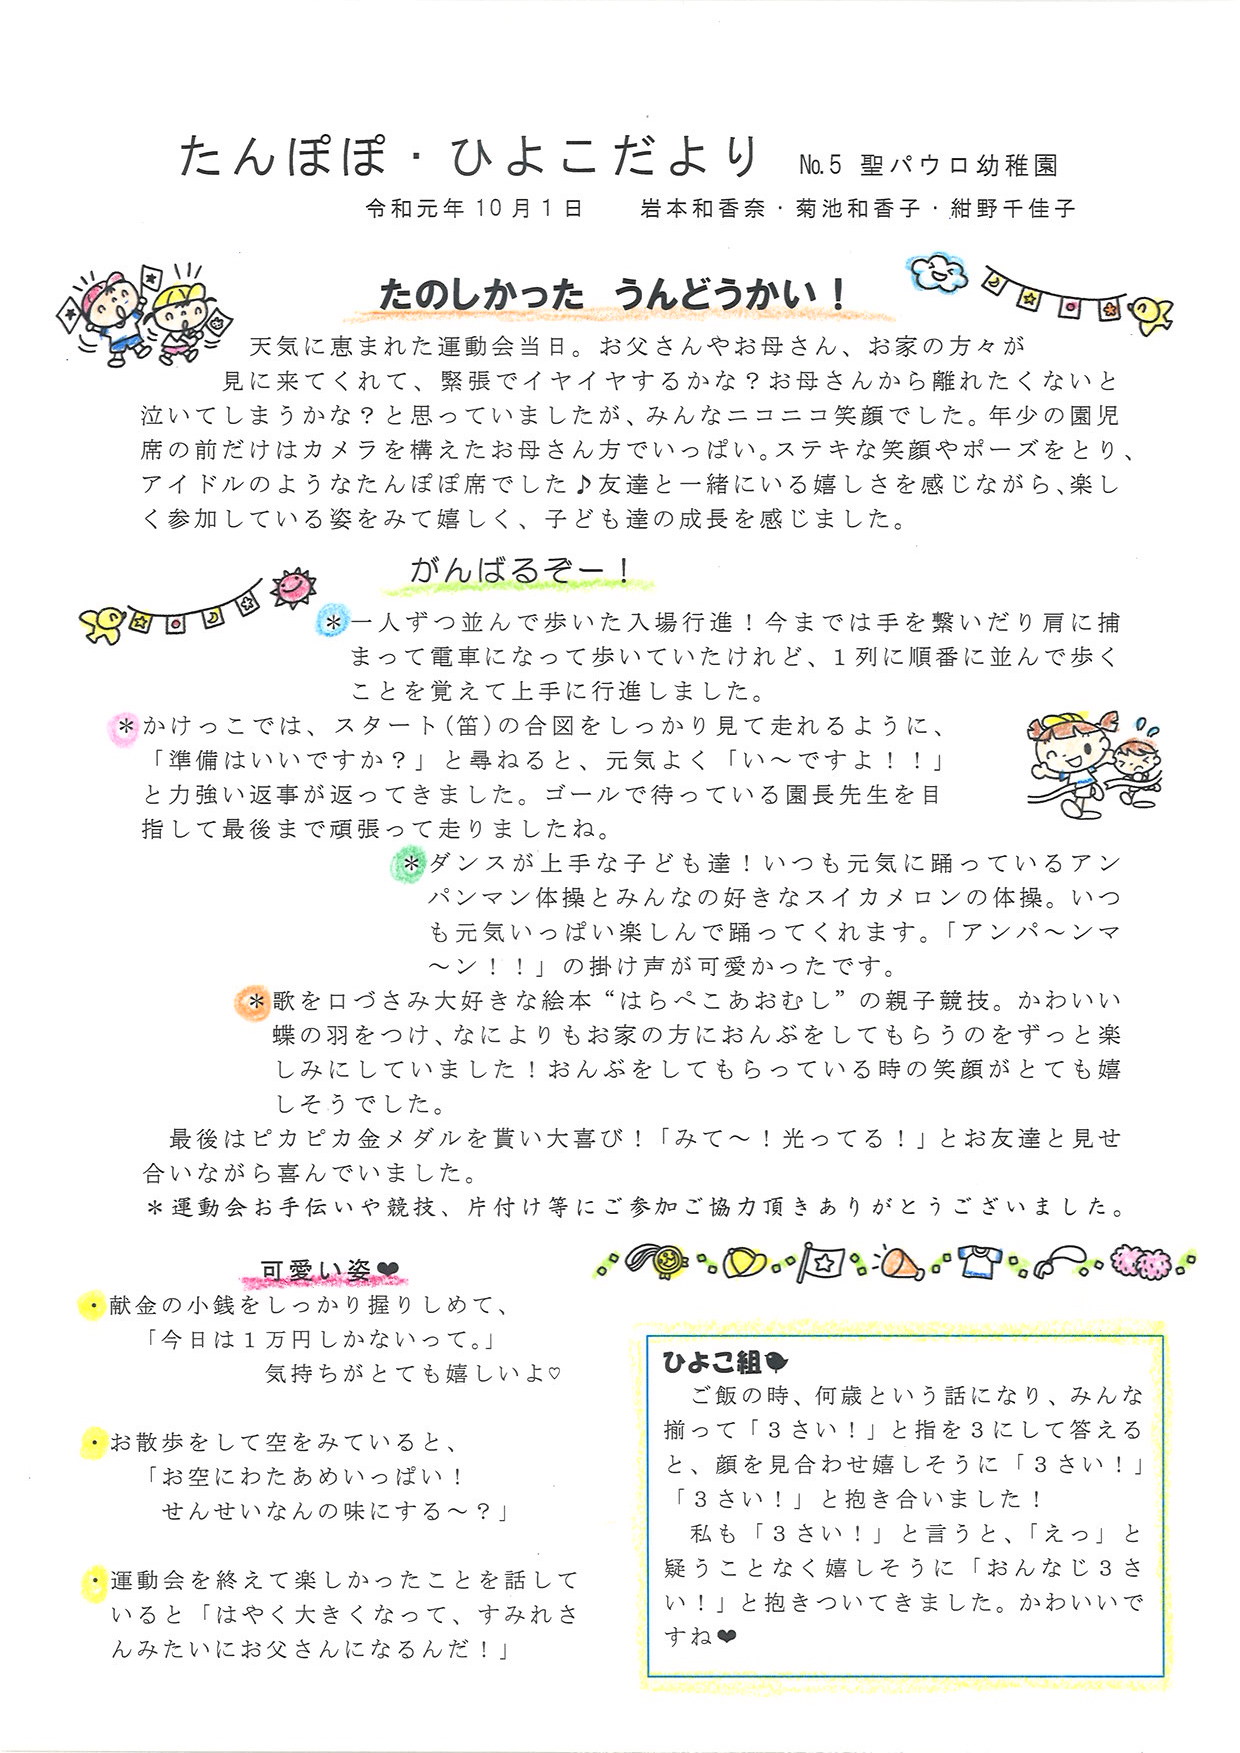 たんぽぽ・ひよこだより　№5 聖パウロ幼稚園
令和元年10月1日　　岩本和香奈・菊池和香子・紺野千佳子
たのしかった　うんどうかい！
天気に恵まれた運動会当日。お父さんやお母さん、お家の方々が
見に来てくれて、緊張でイヤイヤするかな？お母さんから離れたくないと
泣いてしまうかな？と思っていましたが、みんなニコニコ笑顔でした。年少の園児
席の前だけはカメラを構えたお母さん方でいっぱい。ステキな笑顔やポーズをとり、
アイドルのようなたんぽぽ席でした♪友達と一緒にいる嬉しさを感じながら、楽し
く参加している姿をみて嬉しく、子ども達の成長を感じました。
がんばるぞー！
＊一人ずつ並んで歩いた入場行進！今までは手を繋いだり肩に捕
まって電車になって歩いていたけれど、１列に順番に並んで歩く
ことを覚えて上手に行進しました。
＊かけっこでは、スタート(笛)の合図をしっかり見て走れるように、
「準備はいいですか？」と尋ねると、元気よく「い～ですよ！！」
と力強い返事が返ってきました。ゴールで待っている園長先生を目
指して最後まで頑張って走りましたね。
＊ダンスが上手な子ども達！いつも元気に踊っているアン
パンマン体操とみんなの好きなスイカメロンの体操。いつ
も元気いっぱい楽しんで踊ってくれます。「アンパ～ンマ
～ン！！」の掛け声が可愛かったです。
＊歌を口づさみ大好きな絵本“はらぺこあおむし”の親子競技。かわいい
蝶の羽をつけ、なによりもお家の方におんぶをしてもらうのをずっと楽
しみにしていました！おんぶをしてもらっている時の笑顔がとても嬉
しそうでした。
最後はピカピカ金メダルを貰い大喜び！「みて～！光ってる！」とお友達と見せ
合いながら喜んでいました。
＊運動会お手伝いや競技、片付け等にご参加ご協力頂きありがとうございました。
可愛い姿❤
・献金の小銭をしっかり握りしめて、
「今日は１万円しかないって。」
気持ちがとても嬉しいよ♡
・お散歩をして空をみていると、
「お空にわたあめいっぱい！
せんせいなんの味にする～？」
・運動会を終えて楽しかったことを話して
いると「はやく大きくなって、すみれさ
んみたいにお父さんになるんだ！」
ひよこ組
ご飯の時、何歳という話になり、みんな
揃って「３さい！」と指を３にして答える
と、顔を見合わせ嬉しそうに「３さい！」
「３さい！」と抱き合いました！
私も「３さい！」と言うと、「えっ」と
疑うことなく嬉しそうに「おんなじ３さ
い！」と抱きついてきました。かわいいで
すね❤